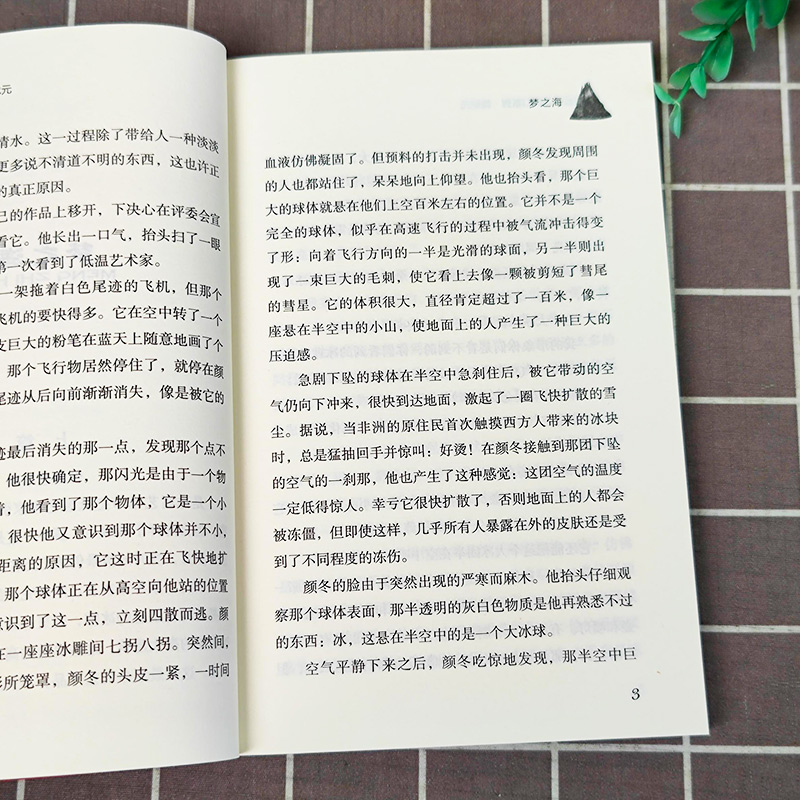 元
清水。这一过程除了带给人一种淡淡
更多说不清道不明的东西，这也许正
的真正原因。
己的作品上移开，下决心在评委会宣
看它。他长出一口气，抬头扫了一眼
第一次看到了低温艺术家。
一架拖着白色尾迹的飞机，但那个
飞机的要快得多。它在空中转了一个
支巨大的粉笔在蓝天上随意地画了个
那个飞行物居然停住了，就停在颜
尾迹从后向前渐渐消失，像是被它的
迹最后消失的那一点，发现那个点不
他很快确定，那闪光是由于一个物
着，他看到了那个物体，它是一个小
很快他又意识到那个球体并不小，
距离的原因，它这时正在飞快地扩
那个球体正在从高空向他站的位置
意识到了这一点，立刻四散而逃。颜
在一座座冰雕间七拐八拐。突然间，
影所笼罩，颜冬的头皮一紧，一时间
梦之海
血液仿佛凝固了。但预料的打击并未出现，颜冬发现周围
的人也都站住了，呆呆地向上仰望。他也抬头看，那个巨
大的球体就悬在他们上空百米左右的位置。它并不是一个
完全的球体，似乎在高速飞行的过程中被气流冲击得变
了形：向着飞行方向的一半是光滑的球面，另一半则出
现了一束巨大的毛刺，使它看上去像一颗被剪短了彗尾
的彗星。它的体积很大，直径肯定超过了一百米，像一
座悬在半空中的小山，使地面上的人产生了一种巨大的
压迫感。
急剧下坠的球体在半空中急刹住后，被它带动的空
气仍向下冲来，很快到达地面，激起了一圈飞快扩散的雪
尘。据说，当非洲的原住民首次触摸西方人带来的冰块
时，总是猛抽回手并惊叫：好烫！在颜冬接触到那团下坠
的空气的一刹那，他也产生了这种感觉：这团空气的温度
一定低得惊人。幸亏它很快扩散了，否则地面上的人都会
被冻僵，但即使这样，几乎所有人暴露在外的皮肤还是受
到了不同程度的冻伤。
颜冬的脸由于突然出现的严寒而麻木。他抬头仔细观
察那个球体表面，那半透明的灰白色物质是他再熟悉不过
的东西：冰，这悬在半空中的是一个大冰球。
空气平静下来之后，颜冬吃惊地发现，那半空中巨
3